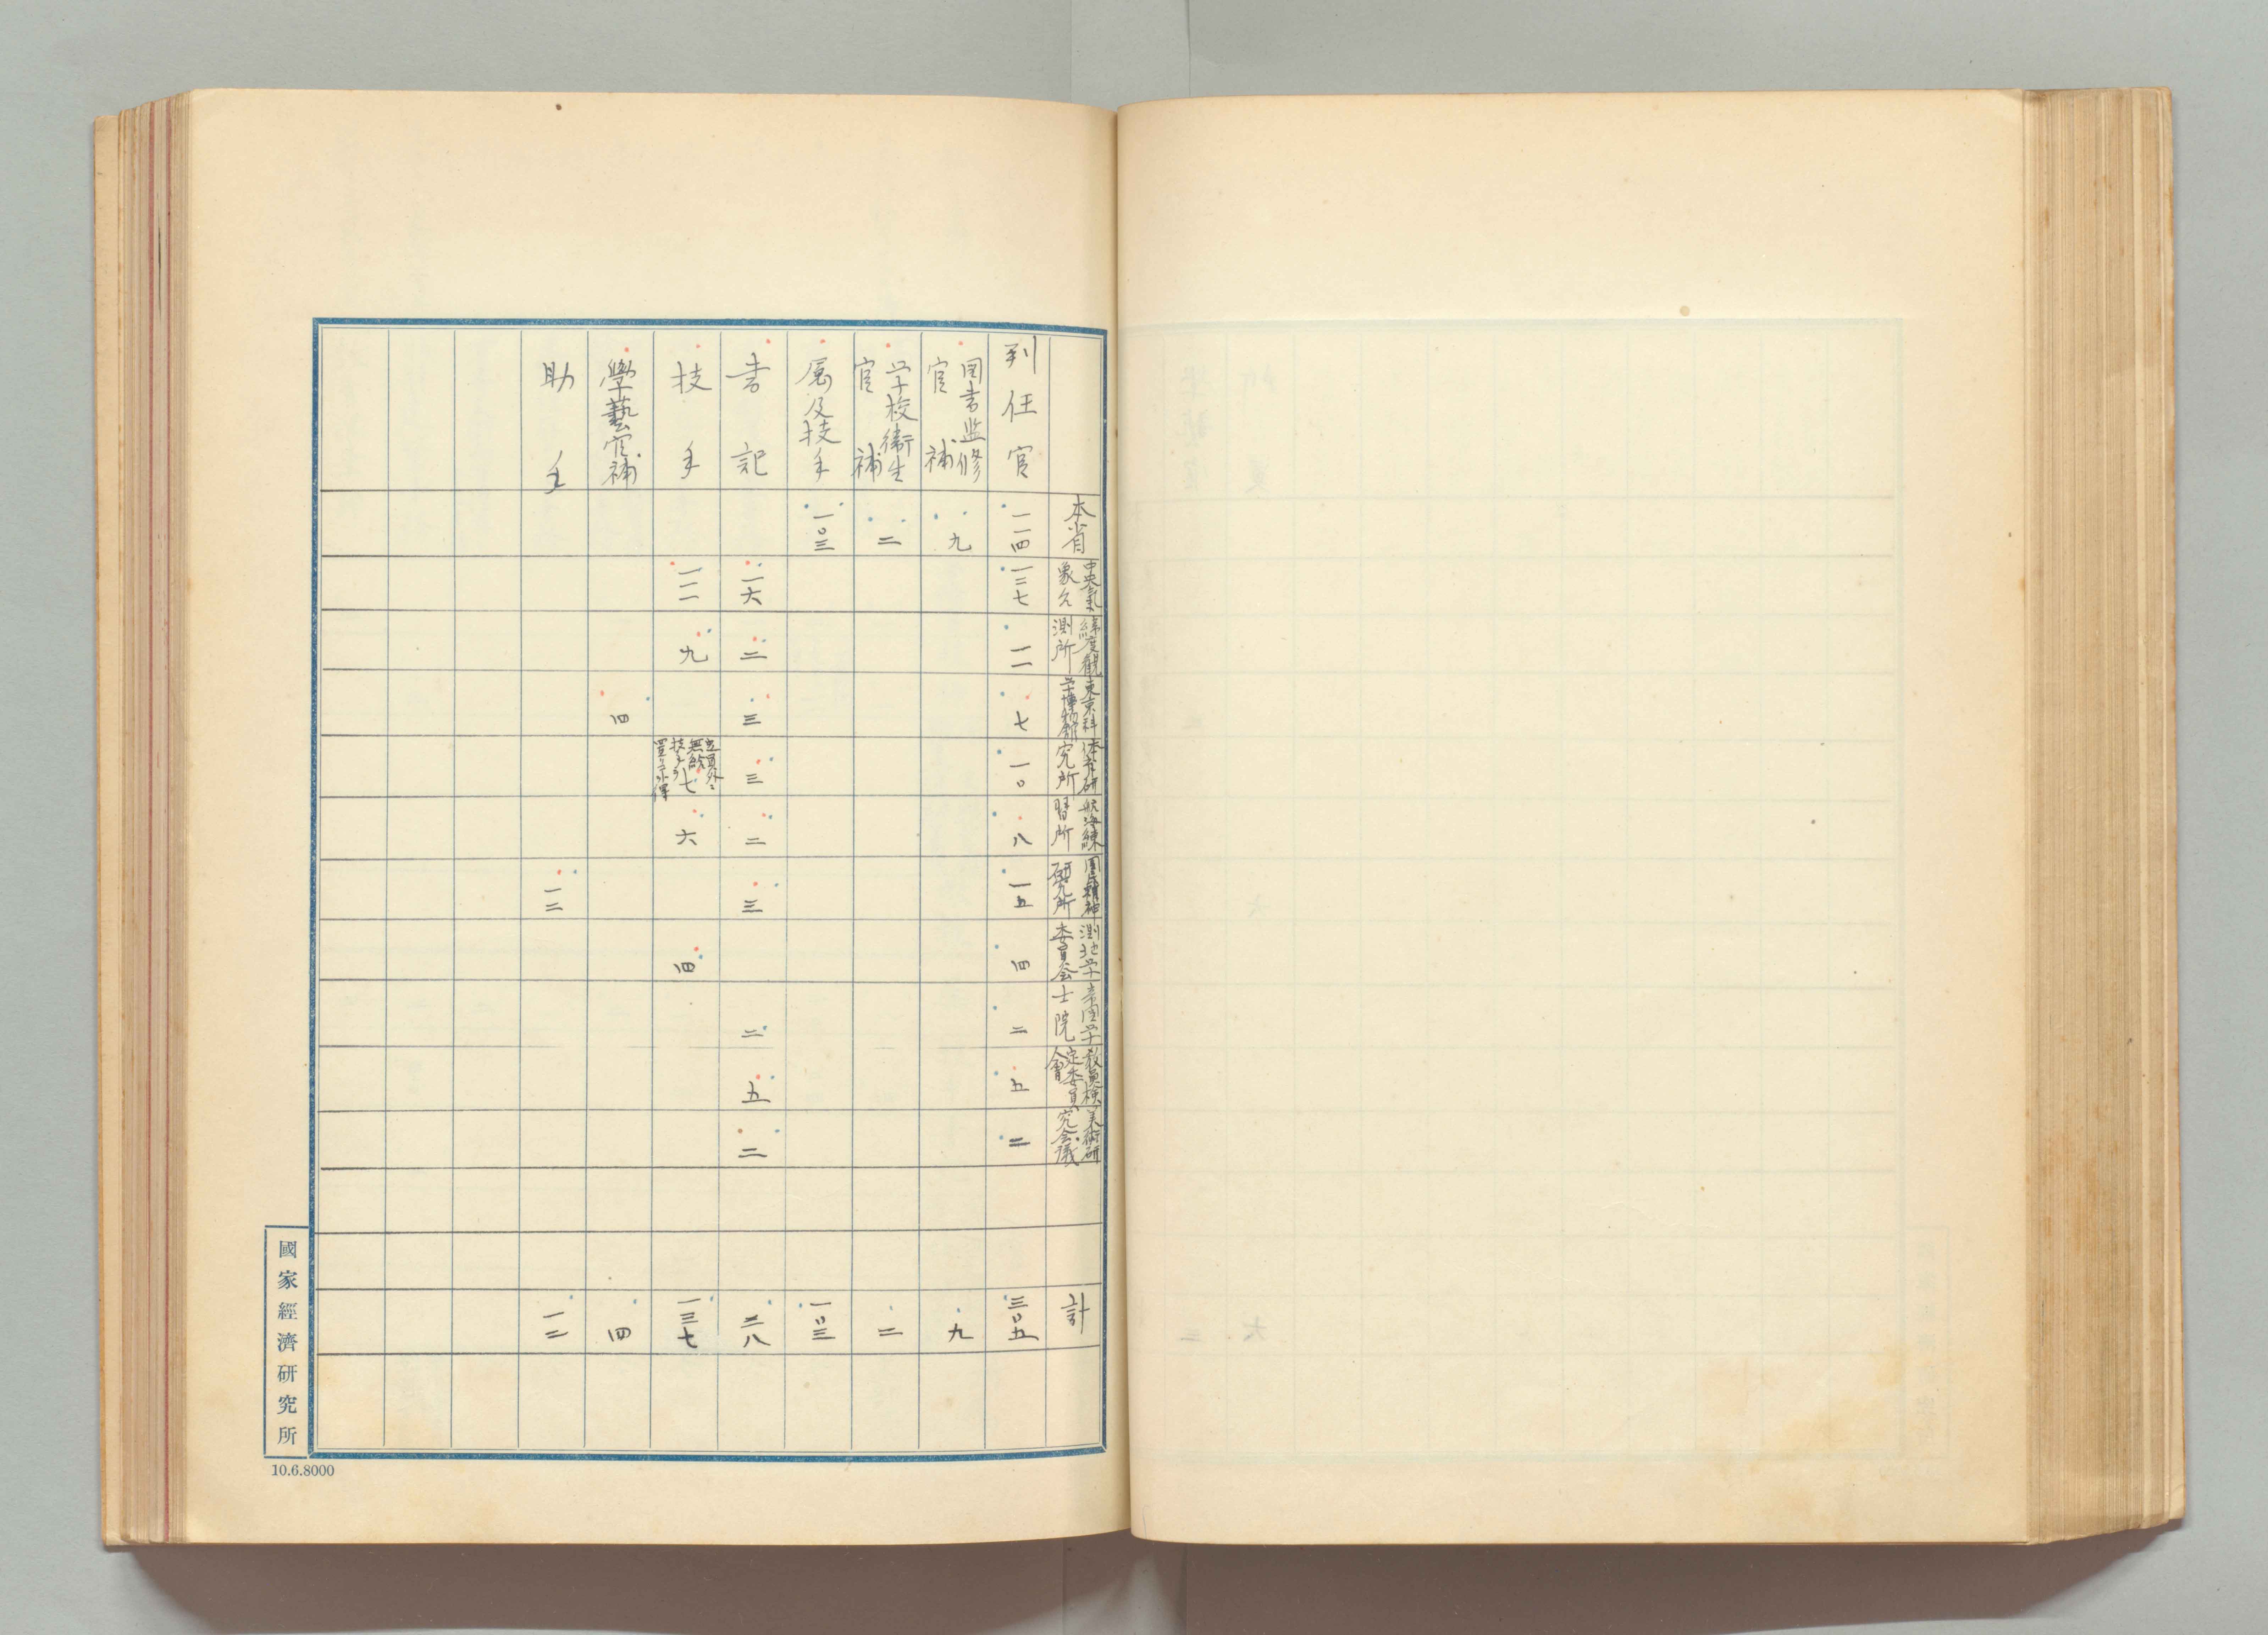 本省
中央氣
象台
緯度觀
測所
東京科
学博物館
体育研
究所
航海練
習所
国民精神
研究所
測地学
委員会
帝国学
士院
教員検
定委員
會
美術研
究会議
計
判任官
一一四
一二七
一一
七
一〇
八
一五
四
二
五
二
三〇五
図書監修
官補
九
九
学校衛生
官補
二
二
属及技手
一〇三
一〇三
書記
一六
二
三
三
二
三
二
五
二
三八
技手
一一一
九
七
定員外ニ
無給
技手ヲ
六
四
一三七
學藝官補
四
四
助手
一二
一二
國家經濟研究所
10.6.8000